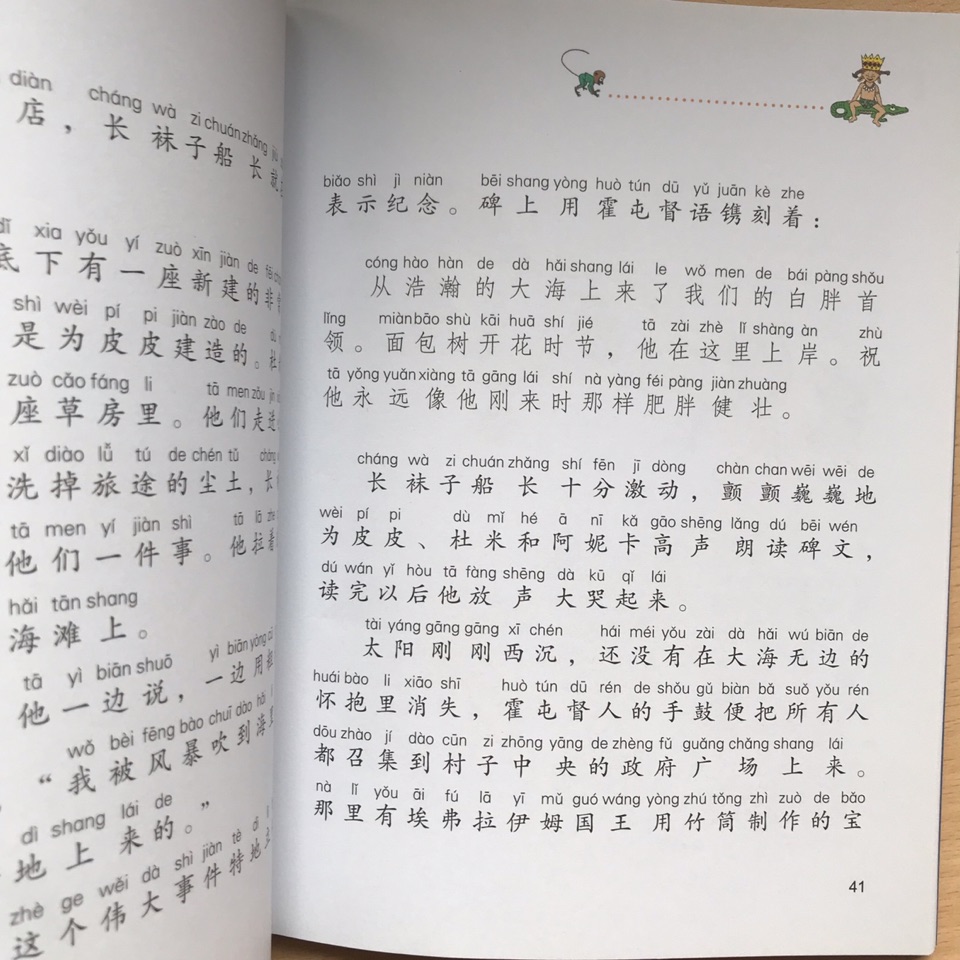 diàn cháng wà zi chuánzhǎng
店，长袜子船长就
xia yǒu yí zuò xīn jiàn de fēi
底下有一座新建的非
shì wèi pí pi jiàn zào de
是为皮皮建造的。杜
zuò cǎo fáng li tā men zǒu jìn
座草房里。他们走进
xǐ diào lǚ tú de chén tǔ
洗掉旅途的尘土，长
tā men yí jiàn shì tā lā zhe
他们一件事。他拉着
hǎi tān shang
海滩上。
tā yì biān shuō yì biān yòng
他一边说，一边用
wǒ bèi fēng bào chuī dào hǎi
“我被风暴吹到海里
dì shang lái de
地上来的。”
zhè ge wěi dà shì jiàn tè dì
这个伟大事件特地
biǎo shì jì niàn bēi shang yòng huò tún dū yǔ juān kè zhe
表示纪念。碑上用霍屯督语镌刻着：
cóng hào hàn de dà hǎi shang lái le wǒ men de bái pàng shǒu
从浩瀚的大海上来了我们的白胖首
lǐng miàn bāo shù kāi huā shí jié tā zài zhè lǐ shàng àn zhù
领。面包树开花时节，他在这里上岸。祝
tā yǒng yuǎn xiàng tā gāng lái shí nà yàng féi pàng jiàn zhuàng
他永远像他刚来时那样肥胖健壮。
cháng wà zi chuán zhǎng shí fēn jī dòng chàn chan wēi wēi de
长袜子船长十分激动，颤颤巍巍地
wèi pí pi dù mǐ hé ā nī kǎ gāo shēng lǎng dú bēi wén
为皮皮、杜米和阿妮卡高声朗读碑文，
dú wán yǐ hòu tā fàng shēng dà kū qǐ lái
读完以后他放声大哭起来。
tài yáng gāng gāng xī chén hái méi yǒu zài dà hǎi wú biān de
太阳刚刚西沉，还没有在大海无边的
huái bào li xiāo shī huò tún dū rén de shǒu gǔ biàn bǎ suǒ yǒu rén
怀抱里消失，霍屯督人的手鼓便把所有人
dōu zhào jí dào cūn zi zhōng yāng de zhèng fǔ guǎng chǎng shang lái
都召集到村子中央的政府广场上来。
nà lǐ yǒu āi fú lā yī mǔ guó wáng yòng zhú tǒng zhì zuò de bǎo
那里有埃弗拉伊姆国王用竹筒制作的宝
41